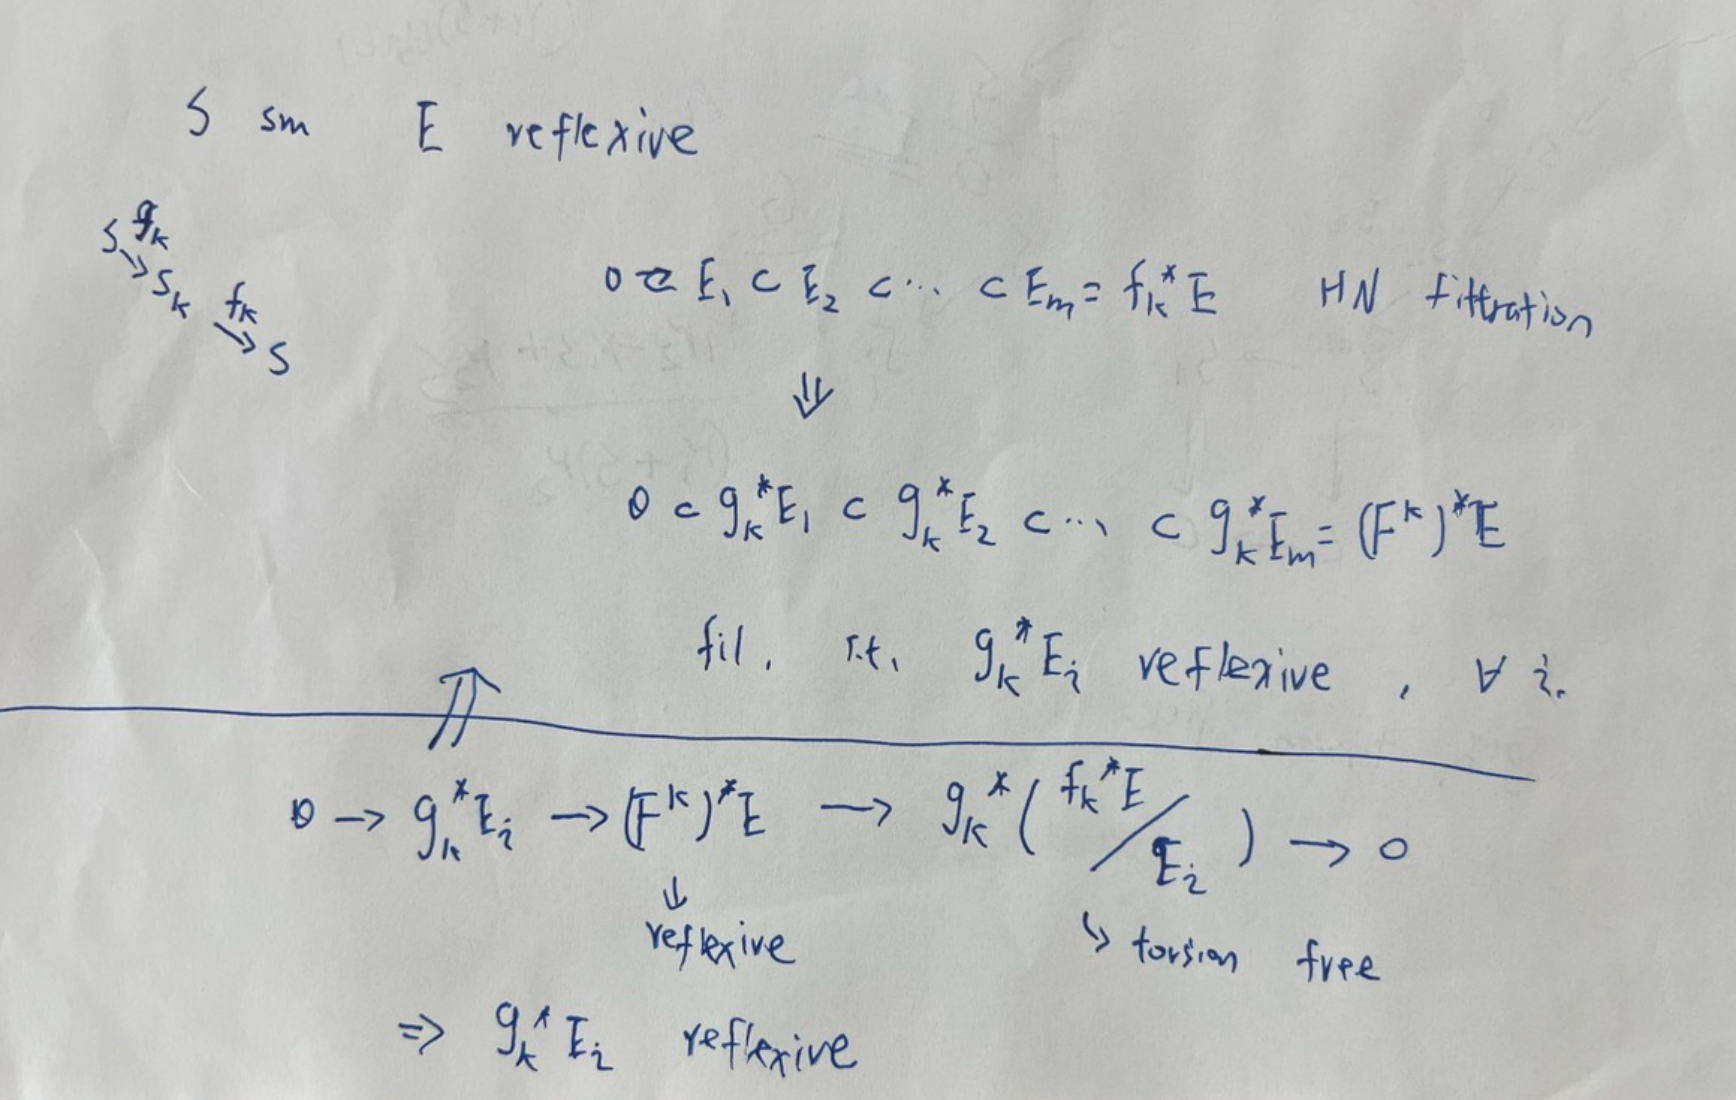 S sm E reflexive
S g_k
↘ S_k f_k
↘ S
0 ⊂ E_1 ⊂ E_2 ⊂ ⋯ ⊂ E_m = f_k^* E HN filtration
⇓
0 ⊂ g_k^* E_1 ⊂ g_k^* E_2 ⊂ ⋯ ⊂ g_k^* E_m = (F^k)^* E
fil. s.t. g_k^* E_i reflexive, ∀ i.
⇑
0 → g_k^* E_i → (F^k)^* E → g_k^* ( f_k^* E / E_i ) → 0
↓ reflexive
↳ torsion free
⇒ g_k^* E_i reflexive